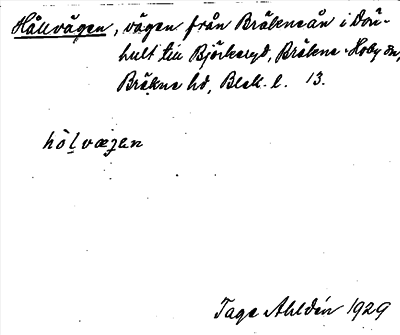 Hållvägen, vägen från Bräkneån i Drä-
hult till Björkeryd, Bräkne-Hoby sn,
Bräkne hd, Blek. l. 13.
hòlvægen
Tage Ahldén 1929